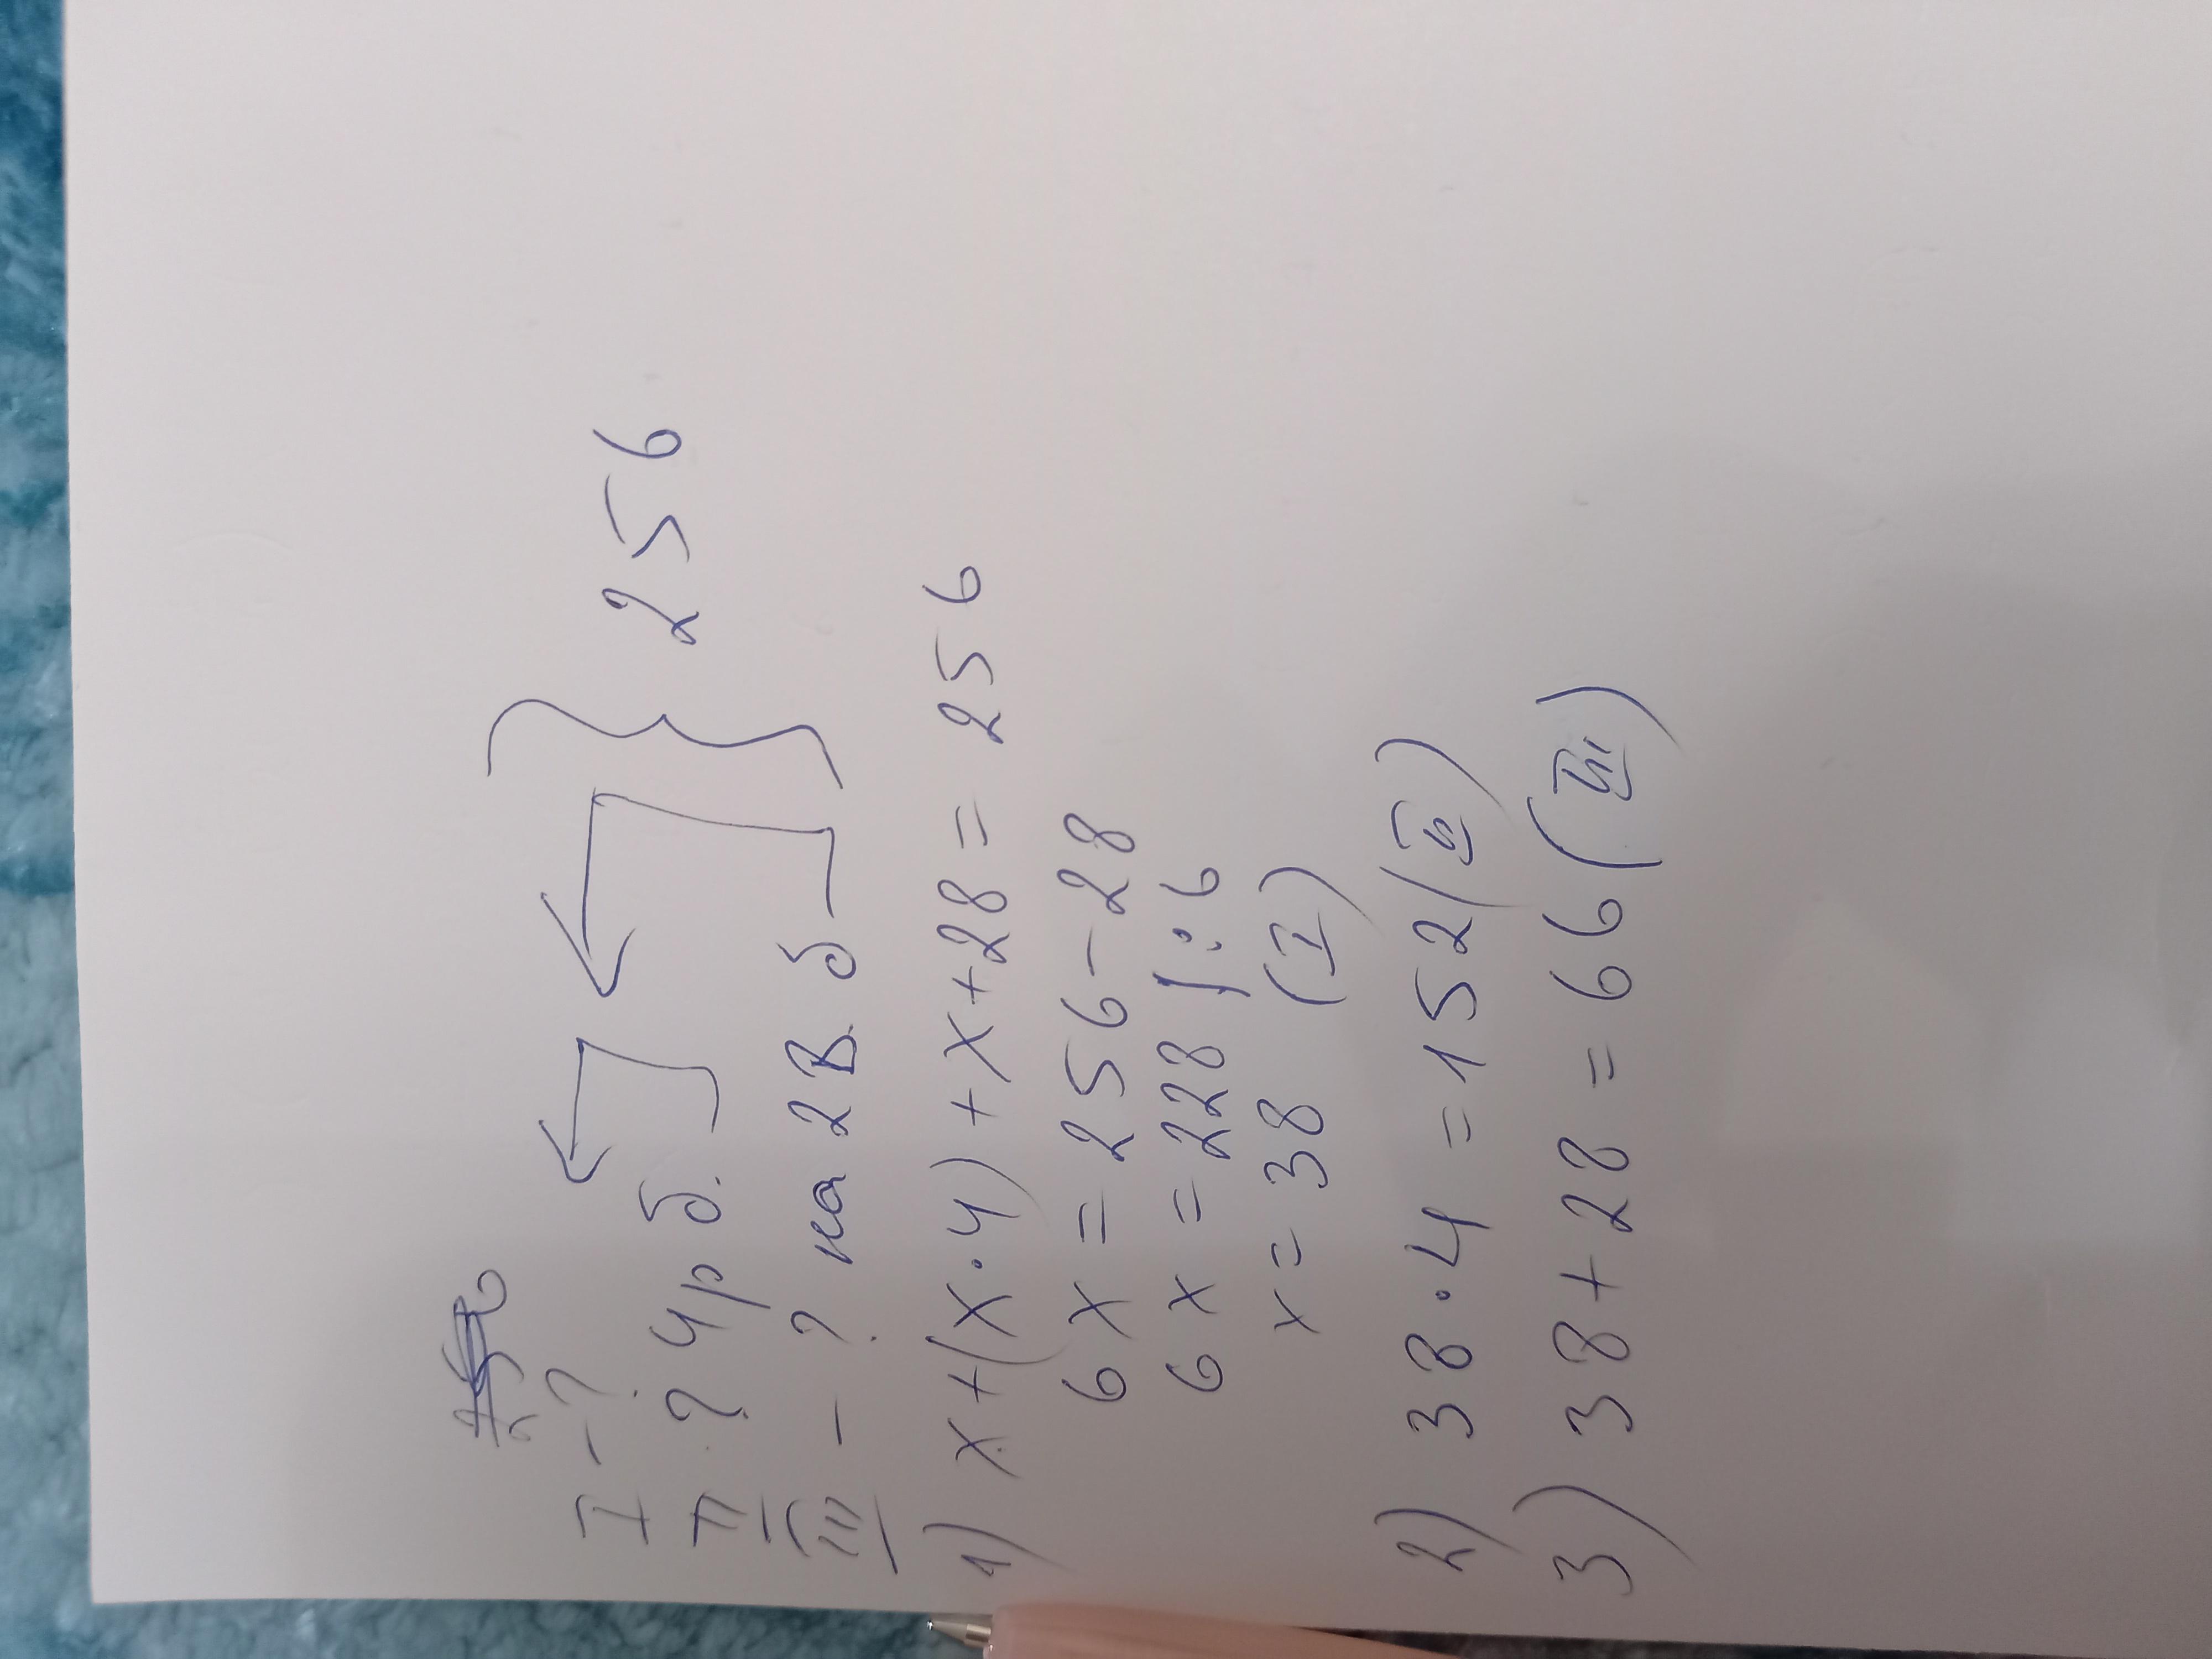 I - ?
II ? 4р б.
III - ? на 28 б
} 256
1) x+(x·4)+x+28=256
6x=256-28
6x=228 |:6
x=38 (I)
2) 38·4=152(II)
3) 38+28=66(III)